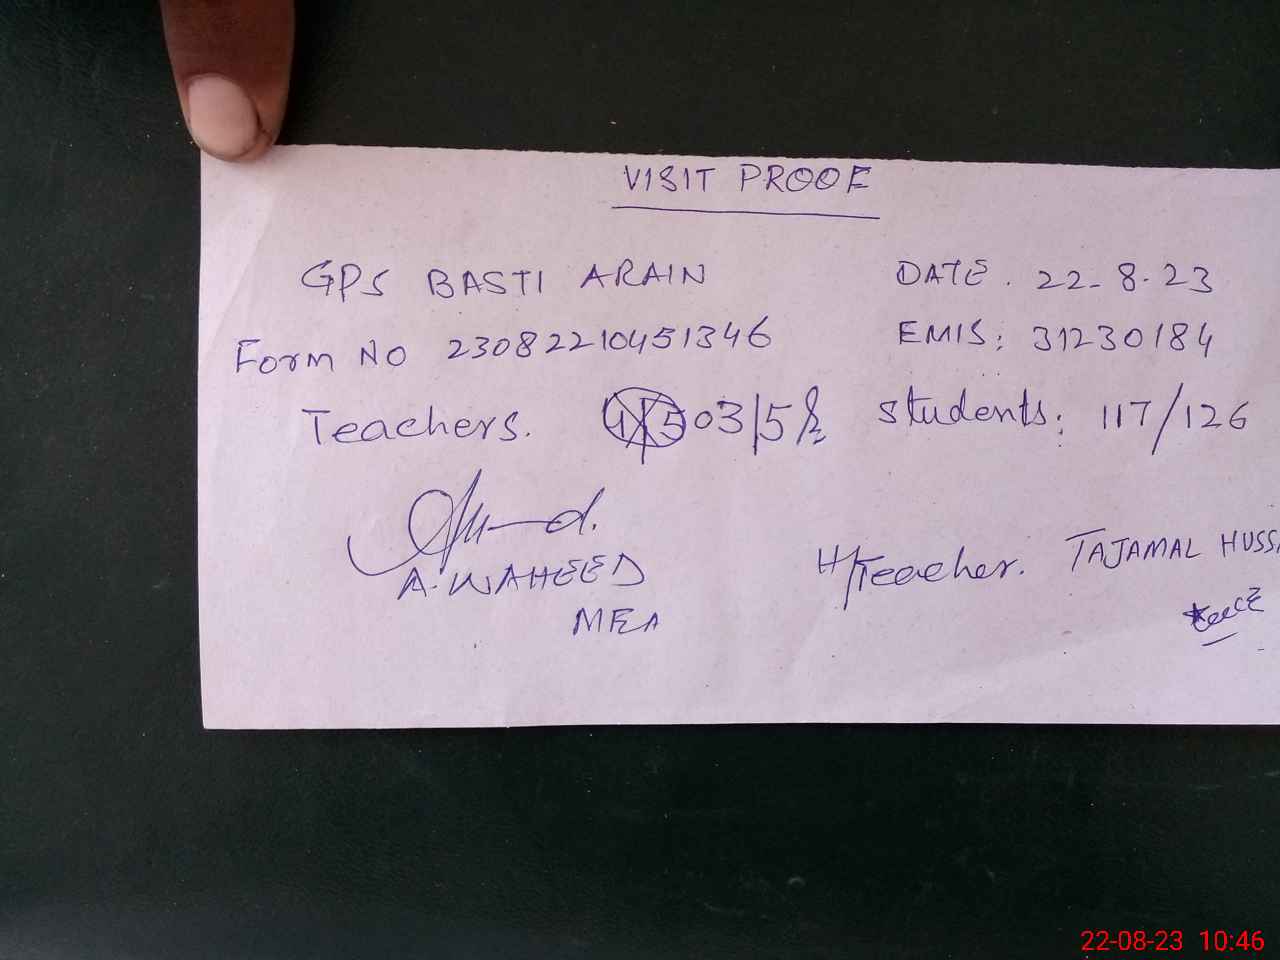 VISIT PROOF
GPS BASTI ARAIN DATE. 22-8-23
Form No 23082210451346 EMIS: 31230184
Teachers. 03/5 Students: 117/126
A. WAHEED
MEA
H/Teacher. TAJAMAL HUSSA
22-08-23 10:46